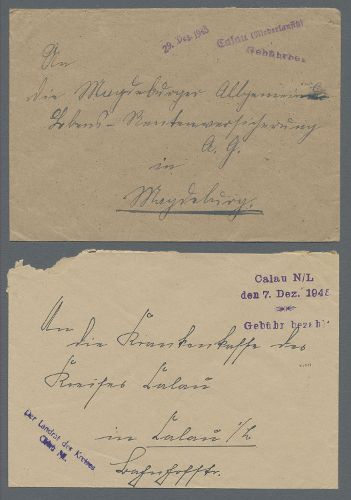 29. Dez. 1945
Calau (Niederlausitz)
Gebühr bez
An
die Magdeburger Allgemeine
Lebens- Rentenversicherung
A. G.
in
Magdeburg.
Calau N/L
den 7. Dez. 1945
Gebühr bezahl
An
die Krankenkasse des
Kreises Calau
in Calau N/L
Bahnhofstr.
Der Landrat des Kreises